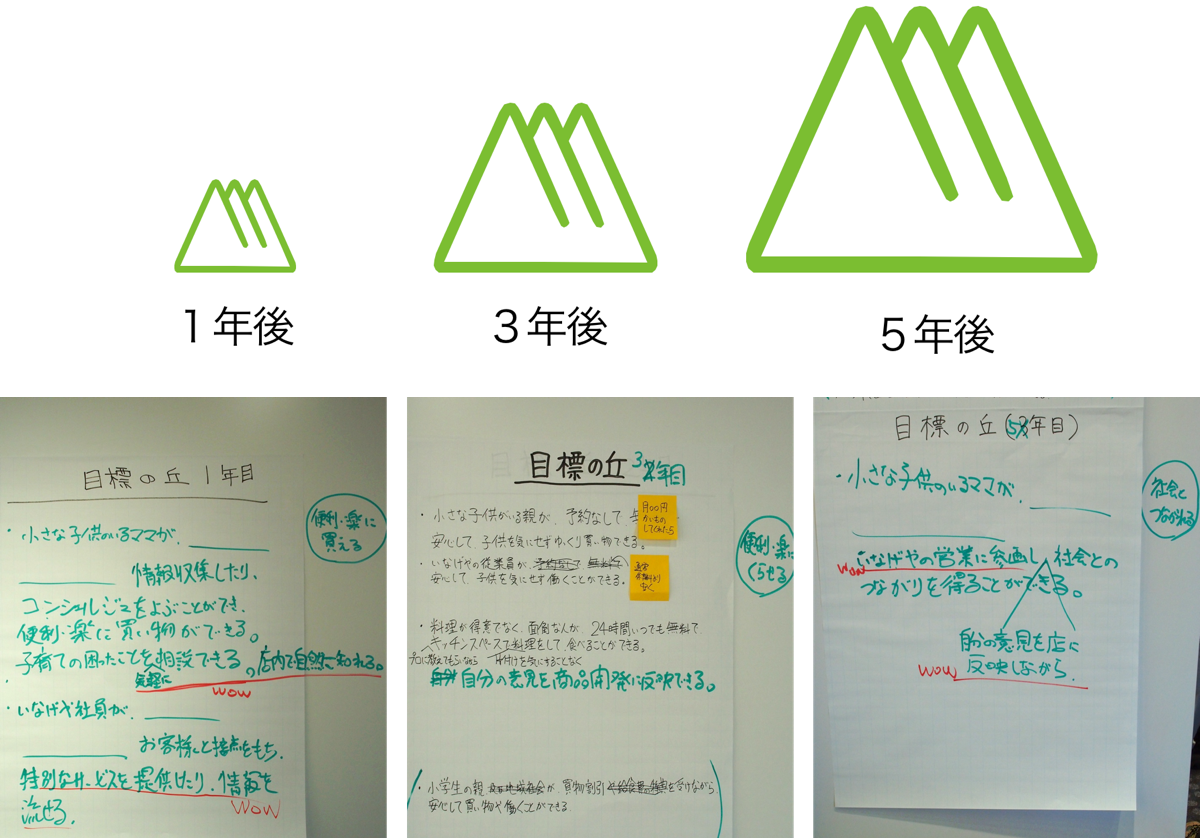 1年後
3年後
5年後
目標の丘 1年目
便利・楽に
買える
・小さな子供のいるママが、
情報収集したり、
コンシェルジュをよぶことができ、
便利・楽に買い物ができる。
子育ての困ったことを相談できる。店内で自然に知れる。
気軽に
wow
・いなげや社員が、
お客様と接点をもち、
特別なサービスを提供したり、情報を
流せる。
wow
目標の丘 3年目
・小さな子供がいる親が、予約なしで、
月〇〇円
かいもの
してくれたら
安心して、子供を気にせずゆっくり買い物できる。
便利・楽に
くらせる
・いなげやの従業員が、予約なしで 無料で
安心して、子供を気にせず働くことができる。
・料理が得意でなく、面倒な人が、24時間いつでも無料で、
キッチンスペースで料理をして、食べることができる。
プロに教えてもらいながら 片付けを気にすることなく
自分の意見を商品開発に反映できる。
・小学生の親 が、買物割引 を受けながら
安心して買い物や働くことができる。
目標の丘(5年目)
・小さな子供のいるママが、
社会と
つながれる
いなげやの営業に参画し、社会との
wow
つながりを得ることができる。
自分の意見を店に
反映しながら、
wow